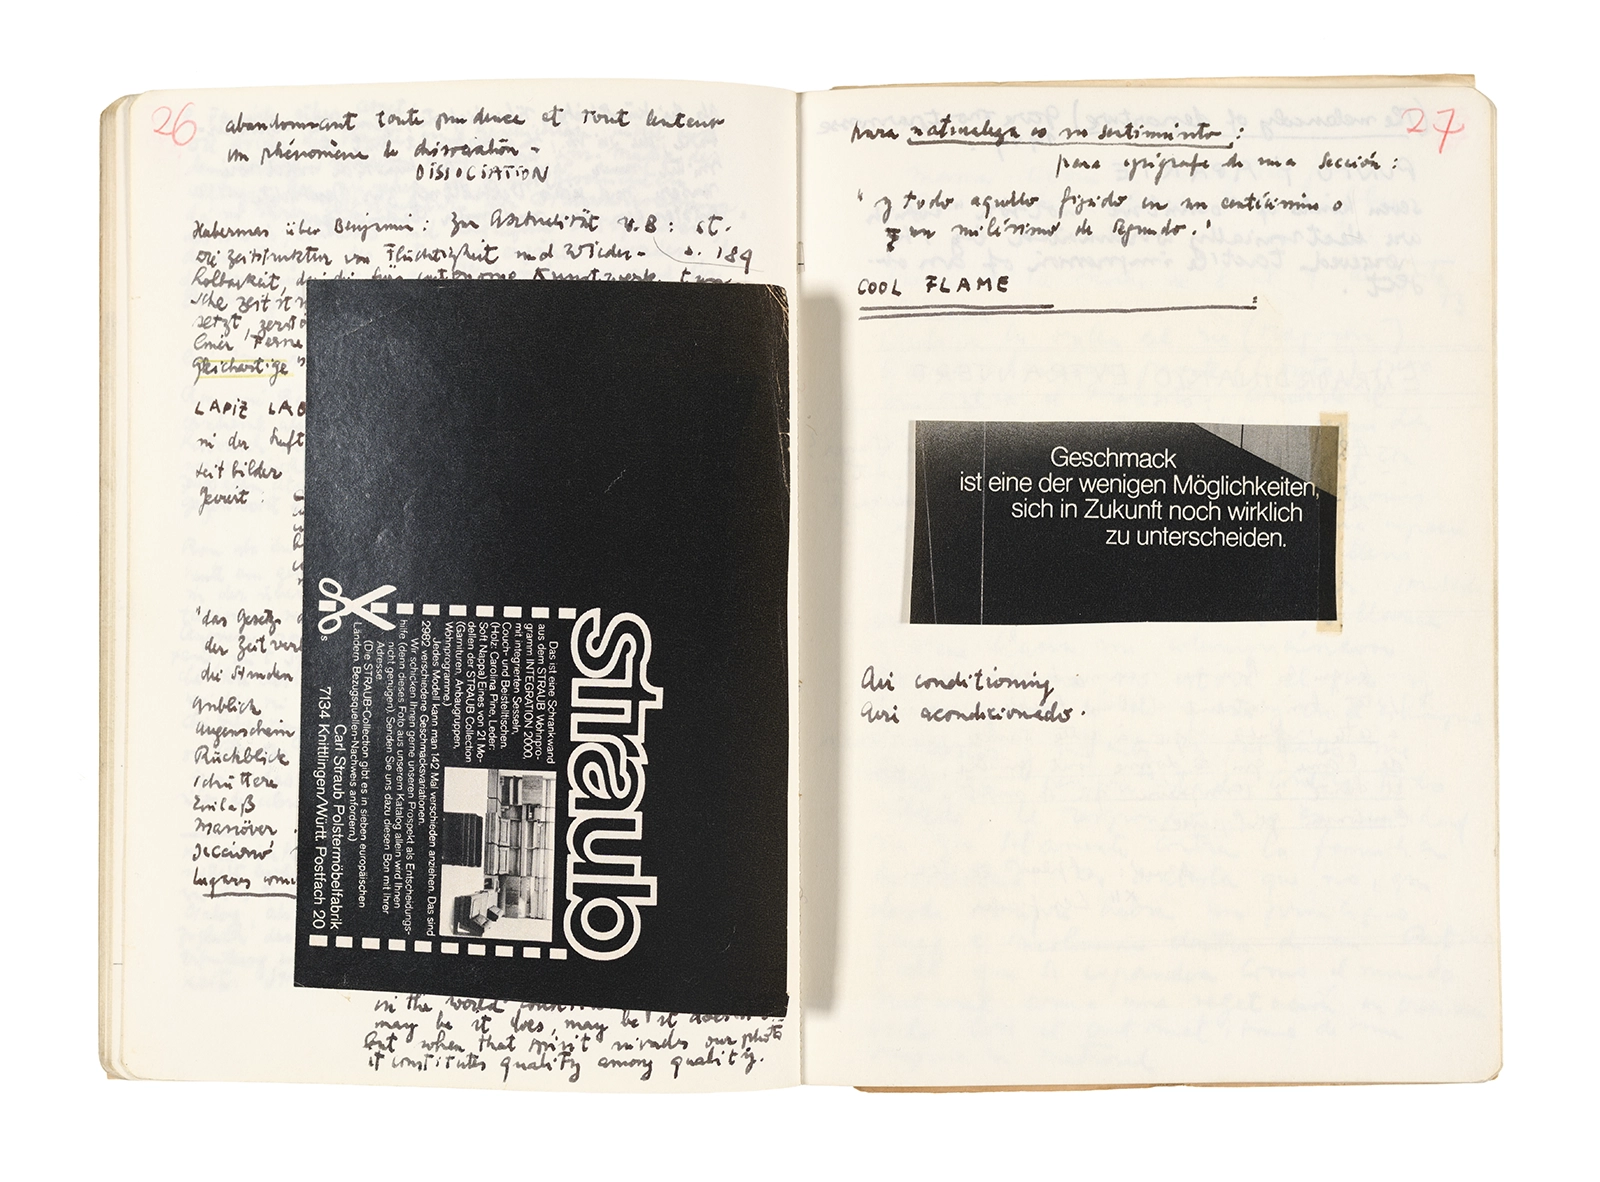 26
abandonnant toute prudence et tout
un phénomène de dissociation -
DISSOCIATION
Habermas über Benjamin: Zur Aktualität W.B: st.
die Zeitstruktur von Flüchtigkeit und Wieder- s. 184
holbarkeit, die für autonome Kunstwerk
sche Zeit ist
setzt, zerstö
einer Ferne
Gleichartige"
LAPIZ LAB
in der Luft
seit bilder
"das Gesetz d
der Zeit verl
die Stunden
Anblick
Augenschein
Rückblick
schüttere
Einlaß
Manöver
lugares comu
straub
Das ist eine Schrankwand
aus dem STRAUB Wohnpro-
gramm INTEGRATION 2000,
mit integrierten Sesseln,
Couch- und Beistelltischen.
(Holz: Carolina Pine, Leder:
Soft Nappa) Eines von 21 Mo-
dellen der STRAUB Collection
(Garnituren, Anbaugruppen,
Wohnprogramme.)
Jedes Modell kann man 142 Mal verschieden anziehen. Das sind
2982 verschiedene Geschmacksvariationen.
Wir schicken Ihnen gerne unseren Prospekt als Entscheidungs-
hilfe (denn dieses Foto aus unserem Katalog allein wird Ihnen
nicht genügen). Senden Sie uns dazu diesen Bon mit Ihrer
Adresse.
(Die STRAUB-Collection gibt es in sieben europäischen
Ländern. Bezugsquellen-Nachweis anfordern.)
Carl Straub Polstermöbelfabrik
7134 Knittlingen/Württ. Postfach 20
s
in the world
may be it does, may be it doesn't
but when that spirit invades our photo
it constitutes quality among quality.
27
para naturaleza es un sentimiento:
para epígrafe de una sección:
"y todo aquello fijado en un centésimo o
un milésimo de segundo."
COOL FLAME
Geschmack
ist eine der wenigen Möglichkeiten,
sich in Zukunft noch wirklich
zu unterscheiden.
Air conditioning
Aire acondicionado.